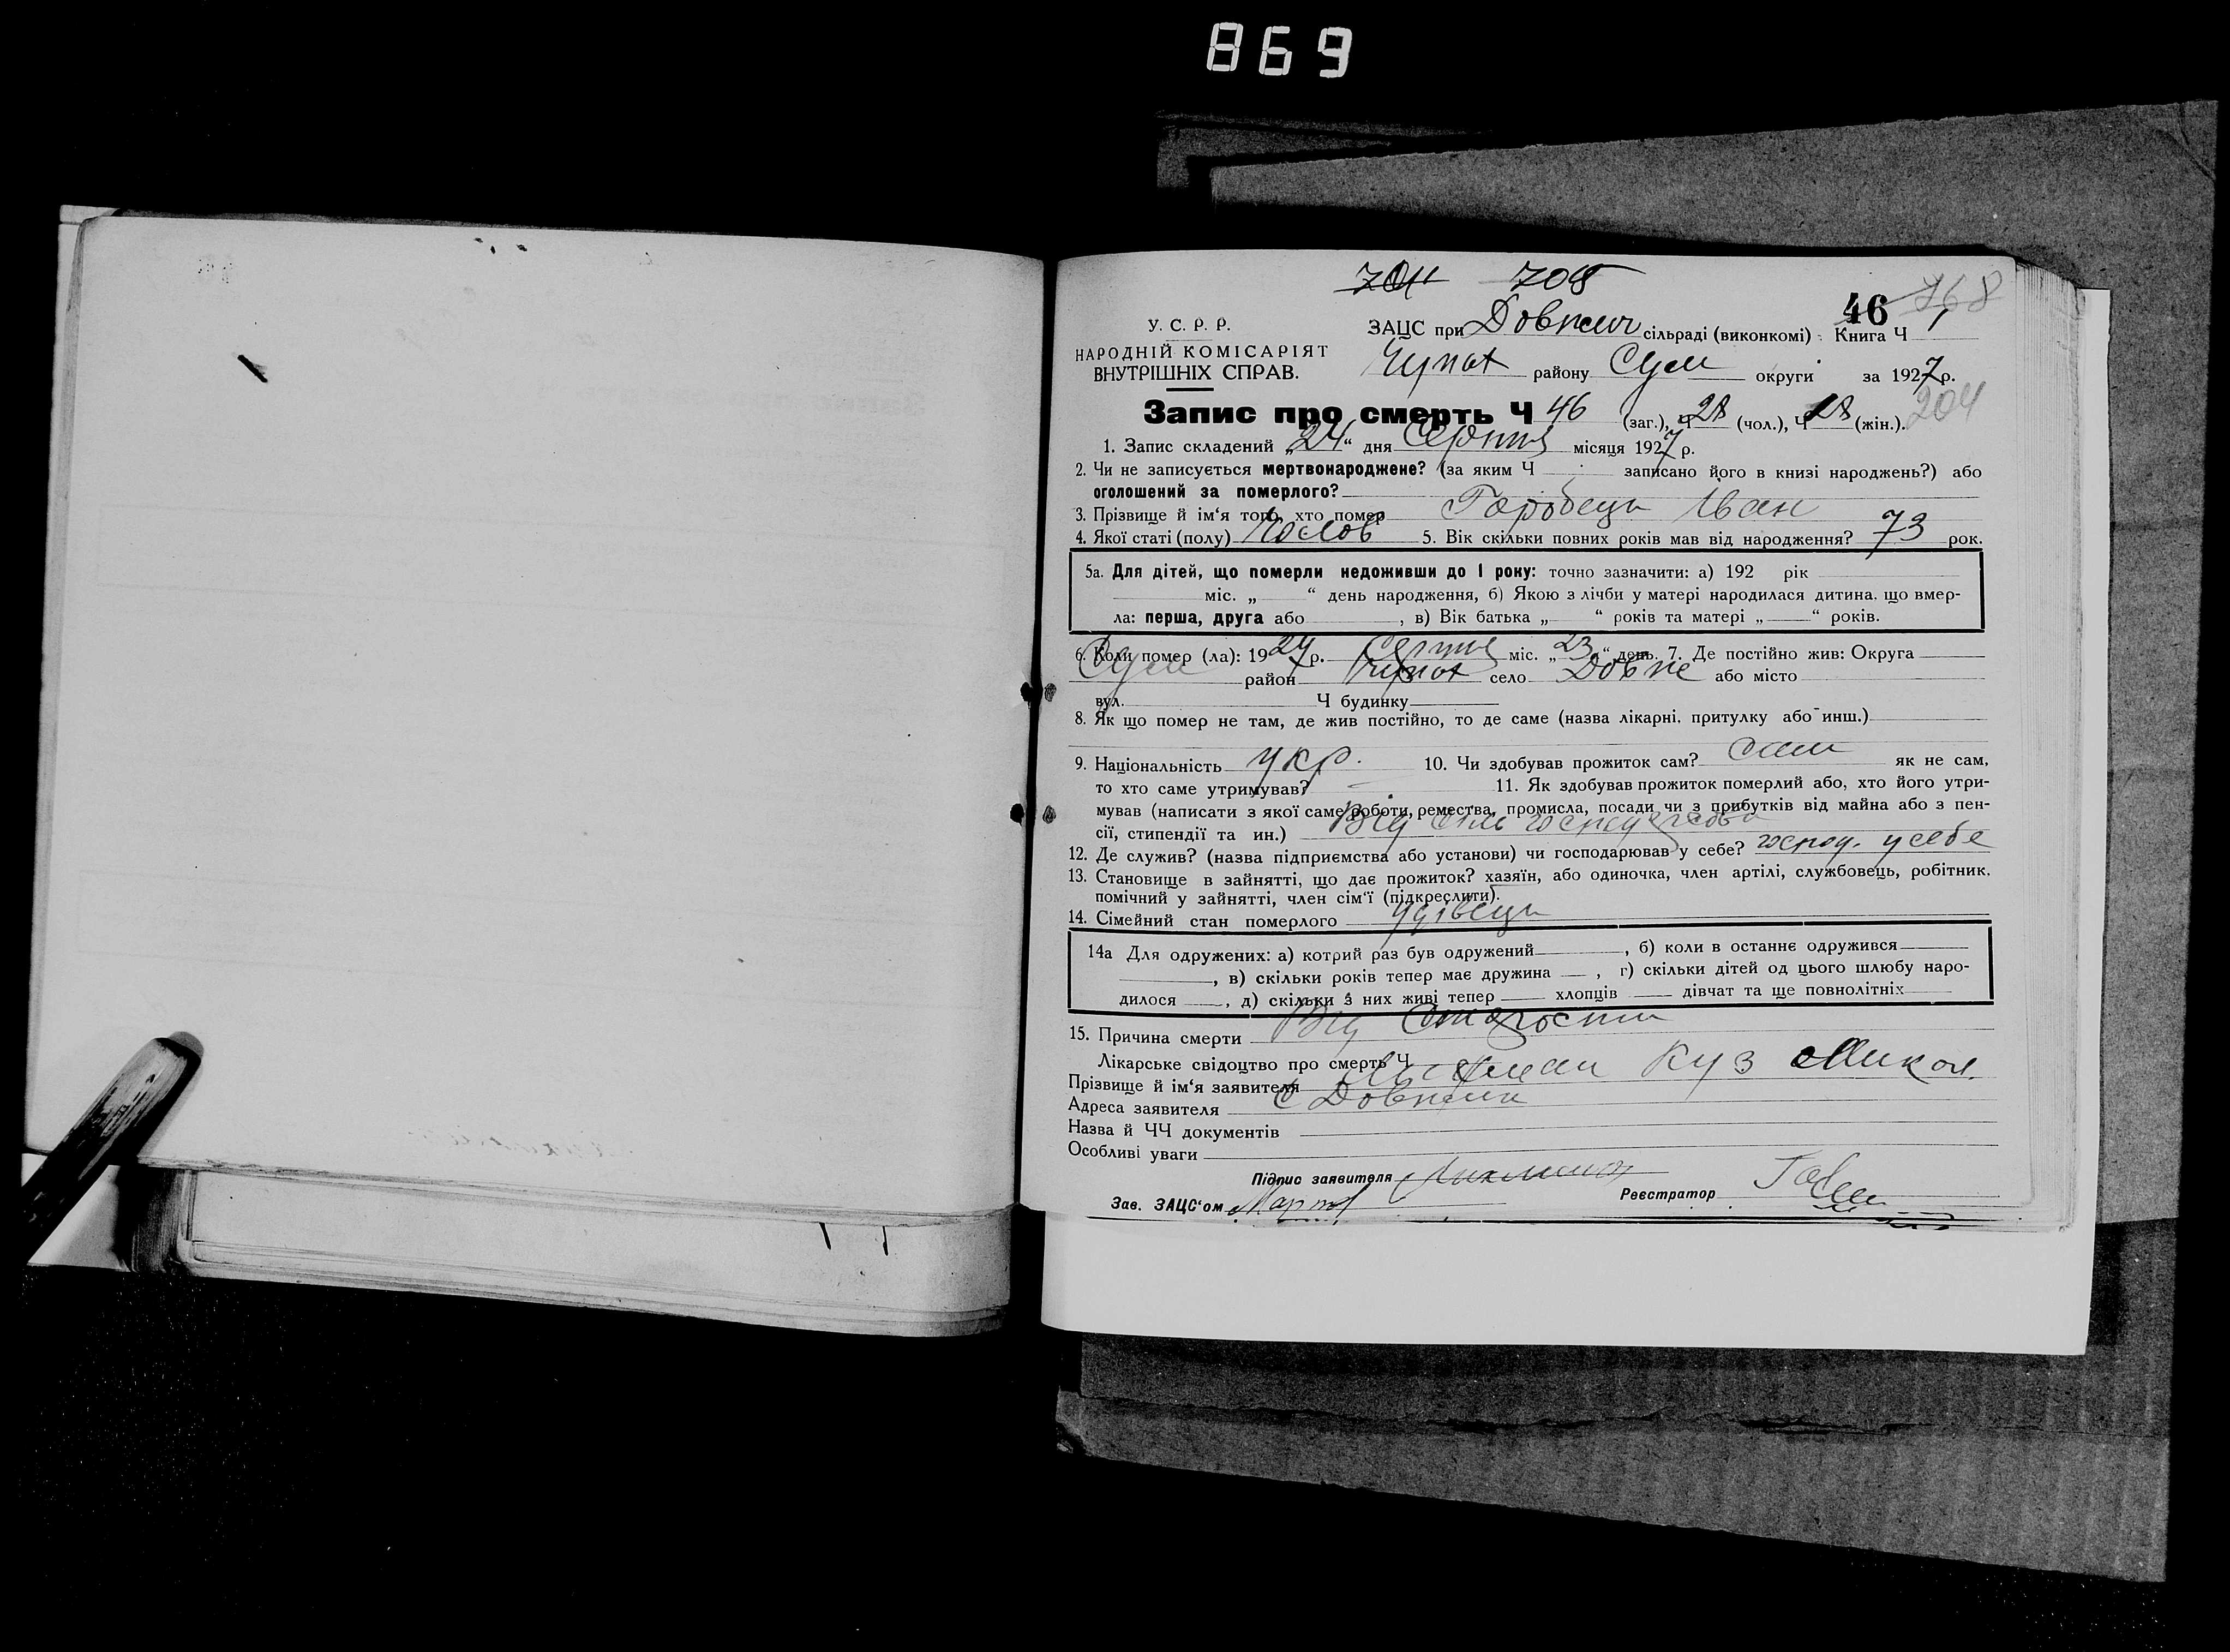 869
704 708
46 768
У. С. Р. Р. ЗАЦС при Довжич сільраді (виконкомі) Книга Ч 1
НАРОДНІЙ КОМІСАРІЯТ
ВНУТРІШНІХ СПРАВ.
району Сум округи за 1927 р.
204
Запис про смерть Ч 46 (заг.), Ч 28 (чол.), Ч 18 (жін.).
1. Запис складений „24“ дня Серпня місяця 1927 р.
2. Чи не записується мертвонароджене? (за яким Ч записано його в книзі народжень?) або
оголошений за померлого?
3. Прізвище й ім‘я того, хто помер Горобець Іван
4. Якої статі (полу) Чослов 5. Вік скільки повних років мав від народження? 73 рок.
5а. Для дітей, що померли недоживши до 1 року: точно зазначити: а) 192 рік
міс. „ “ день народження, б) Якою з лічби у матері народилася дитина. що вмер-
ла: перша, друга або , в) Вік батька „ “ років та матері „ “ років.
6. Коли помер (ла): 1927 р. Серпня міс. „23“ день. 7. Де постійно жив: Округа
Сум район село Довж або місто
вул. Ч будинку
8. Як що помер не там, де жив постійно, то де саме (назва лікарні, притулку або инш.)
9. Національність укр. 10. Чи здобував прожиток сам? сам як не сам,
то хто саме утримував? — 11. Як здобував прожиток померлий або, хто його утри-
мував (написати з якої саме роботи, ремества, промисла, посади чи з прибутків від майна або з пен-
сії, стипендії та ин.) Від сіль господарства
12. Де служив? (назва підприємства або установи) чи господарював у себе? господ. у себе
13. Становище в зайнятті, що дає прожиток? хазяїн, або одиночка, член артілі, службовець, робітник.
помічний у зайнятті, член сім‘ї (підкреслити).
14. Сімейний стан померлого удівець
14а Для одружених: а) котрий раз був одружений , б) коли в останнє одружився
, в) скільки років тепер має дружина , г) скільки дітей од цього шлюбу наро-
дилося , д) скільки з них живі тепер хлопців дівчат та ще повнолітніх
15. Причина смерти Від Старости
Лікарське свідоцтво про смерть Ч
Прізвище й ім‘я заявителя Куз Микол.
Адреса заявителя С Довжик
Назва й ЧЧ документів
Особливі уваги
Підпис заявителя Реєстратор
Зав. ЗАЦС‘ом